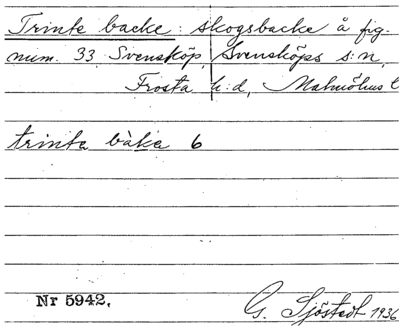 Trinte backe: skogsbacke å fig.
num. 33 Svensköp, Svensköps s:n,
Frosta h:d, Malmöhus l
trinta bàka 6
Nr 5942.
G. Sjöstedt 1936